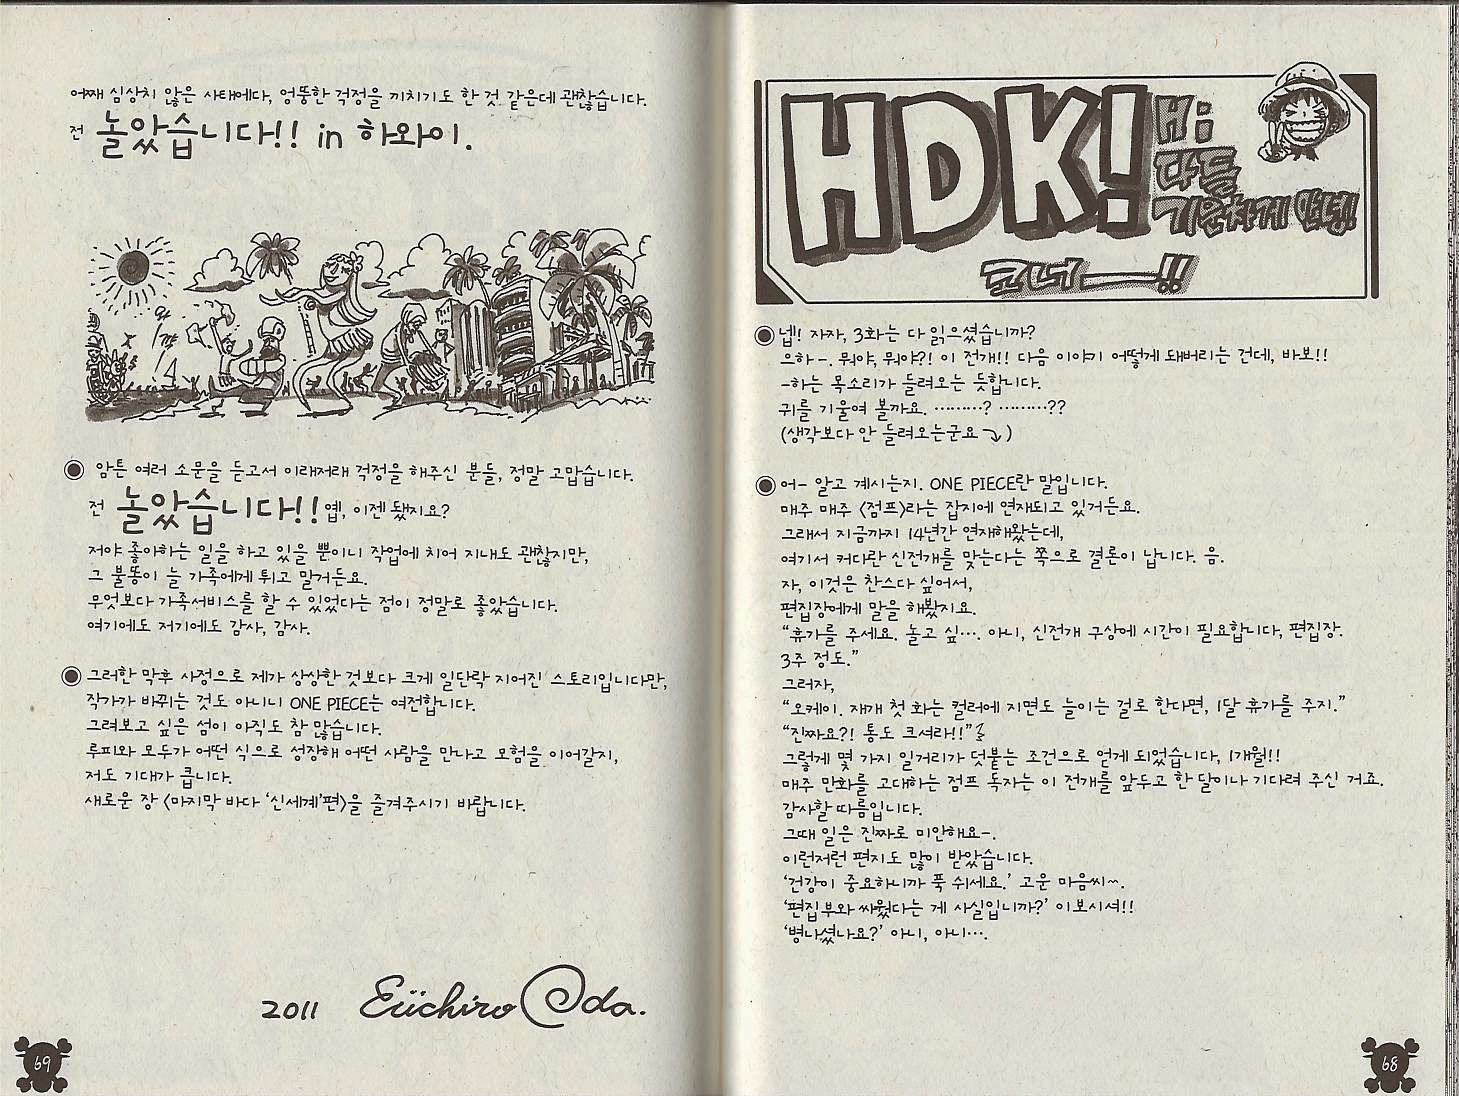 HDK!
Hi
다들
기운차게 안녕!
코너—!!
넵! 자자, 3화는 다 읽으셨습니까?
으하-. 뭐야, 뭐야?! 이 전개!! 다음 이야기 어떻게 돼버리는 건데, 바보!!
-하는 목소리가 들려오는 듯합니다.
귀를 기울여 볼까요. ………? ………??
(생각보다 안 들려오는군요⤵)
어- 알고 계시는지. ONE PIECE란 말입니다.
매주 매주 〈점프〉라는 잡지에 연재되고 있거든요.
그래서 지금까지 14년간 연재해왔는데,
여기서 커다란 신전개를 맞는다는 쪽으로 결론이 납니다. 음.
자, 이것은 찬스다 싶어서,
편집장에게 말을 해봤지요.
“휴가를 주세요. 놀고 싶…. 아니, 신전개 구상에 시간이 필요합니다, 편집장.
3주 정도.”
그러자,
“오케이. 재개 첫 화는 컬러에 지면도 늘이는 걸로 한다면, 1달 휴가를 주지.”
“진짜요?! 통도 크셔라!!”
그렇게 몇 가지 일거리가 덧붙는 조건으로 얻게 되었습니다, 1개월!!
매주 만화를 고대하는 점프 독자는 이 전개를 앞두고 한 달이나 기다려 주신 거죠.
감사할 따름입니다.
그때 일은 진짜로 미안해요-.
이런저런 편지도 많이 받았습니다.
‘건강이 중요하니까 푹 쉬세요.’ 고운 마음씨~.
‘편집부와 싸웠다는 게 사실입니까?’ 이보시셔!!
‘병나셨나요?’ 아니, 아니….
68
어째 심상치 않은 사태에다, 엉뚱한 걱정을 끼치기도 한 것 같은데 괜찮습니다.
전 놀았습니다!! in 하와이.
암튼 여러 소문을 듣고서 이래저래 걱정을 해주신 분들, 정말 고맙습니다.
전 놀았습니다!! 옙, 이젠 됐지요?
저야 좋아하는 일을 하고 있을 뿐이니 작업에 치어 지내도 괜찮지만,
그 불똥이 늘 가족에게 튀고 말거든요.
무엇보다 가족서비스를 할 수 있었다는 점이 정말로 좋았습니다.
여기에도 저기에도 감사, 감사.
그러한 막후 사정으로 제가 상상한 것보다 크게 일단락 지어진 스토리입니다만,
작가가 바뀌는 것도 아니니 ONE PIECE는 여전합니다.
그려보고 싶은 섬이 아직도 참 많습니다.
루피와 모두가 어떤 식으로 성장해 어떤 사람을 만나고 모험을 이어갈지,
저도 기대가 큽니다.
새로운 장 〈마지막 바다 ‘신세계’편〉을 즐겨주시기 바랍니다.
2011 Eiichiro Oda.
69